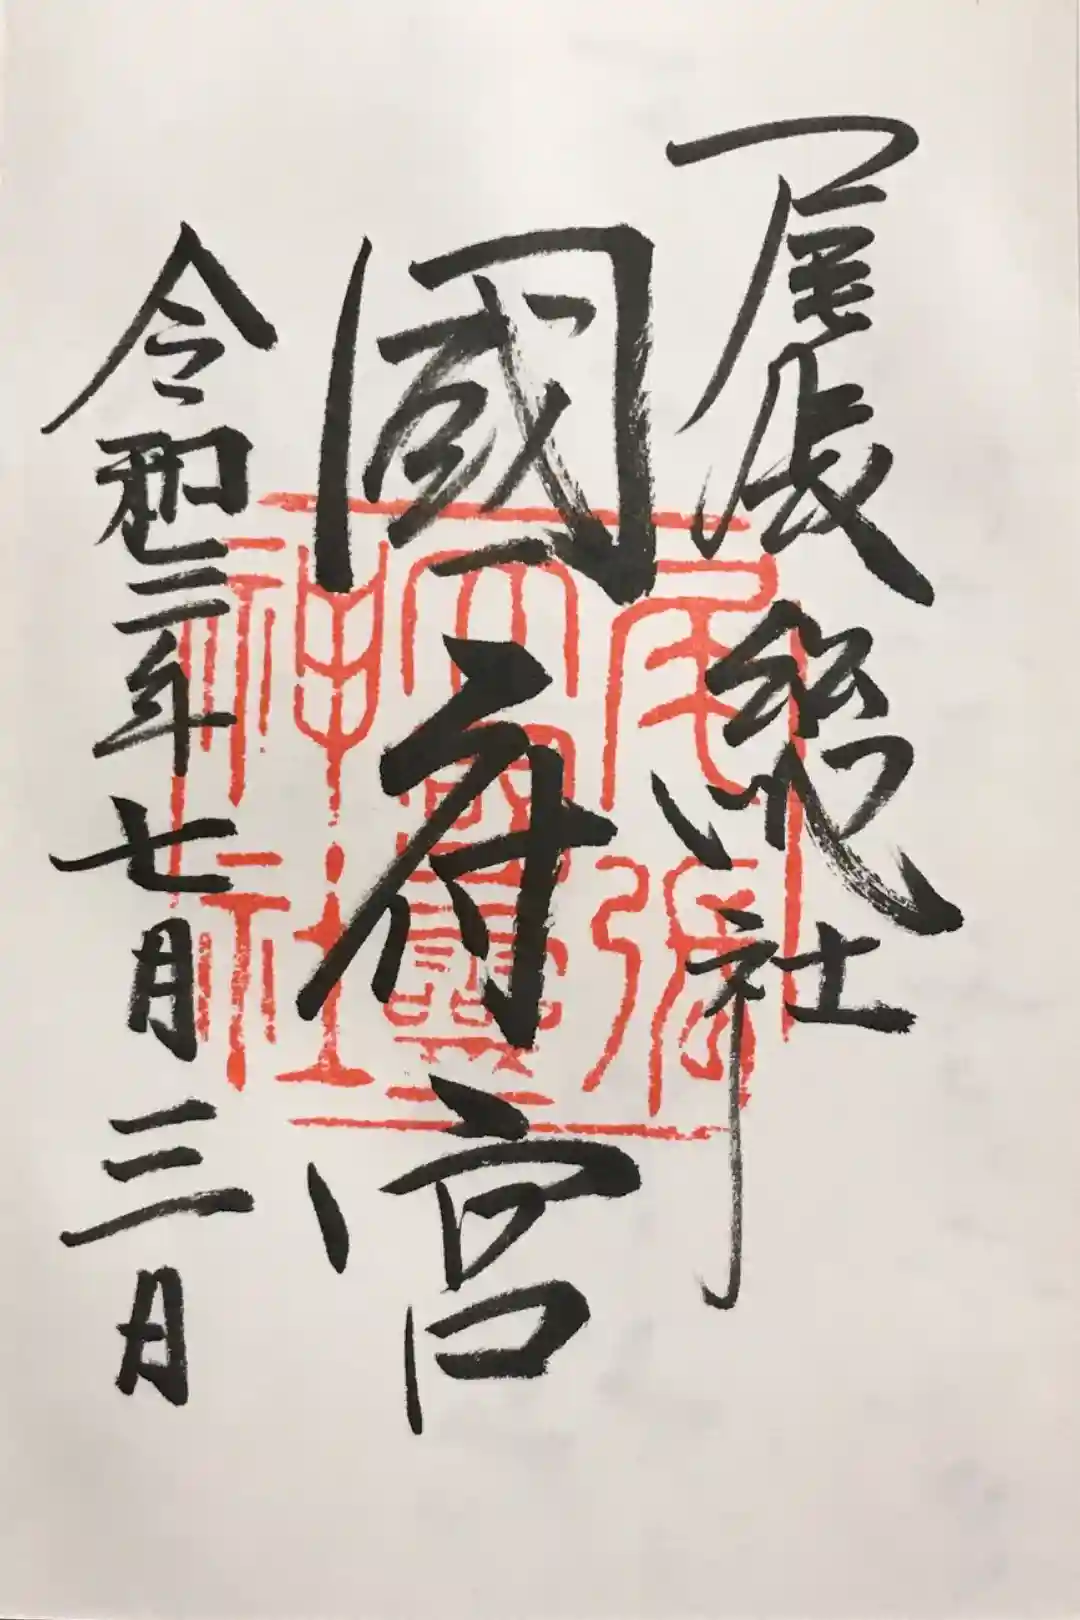 尾張総社
國府宮
令和三年七月三日
尾張
大國霊
神社